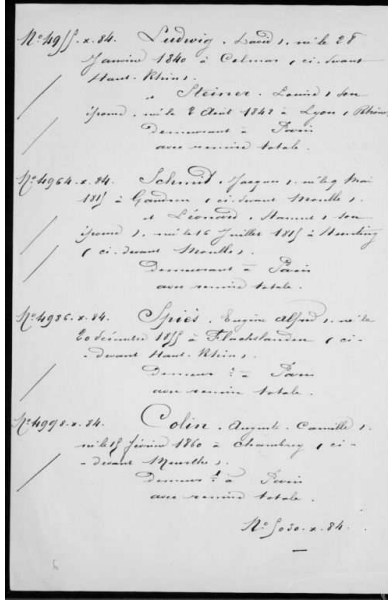 No 4955.x.84. Ludwig, David, né le 28
Janvier 1840 à Colmar (ci-devant
Haut-Rhin),
et Steiner, Louise, son
épouse, née le 2 Août 1842 à Lyon (Rhône)
demeurant à Paris
avec remise totale.
No 4964.x.84. Schmit, Jacques, né le 9 Mai
1815 à (ci-devant Moselle),
et Léonard, son
épouse, née le 16 Juillet 1815 à
(ci-devant Moselle),
demeurant à Paris
avec remise totale.
No 4986.x.84. Spiès, Eugène Alfred, né le
20 décembre 1855 à Flachslanden (ci-
-devant Haut-Rhin),
demeurt à Paris
avec remise totale.
No 4998.x.84. Colin, Auguste Camille,
né le 15 février 1860 à Chambrey (ci-
-devant Meurthe),
demeurt à Paris
avec remise totale.
No 5030.x.84.